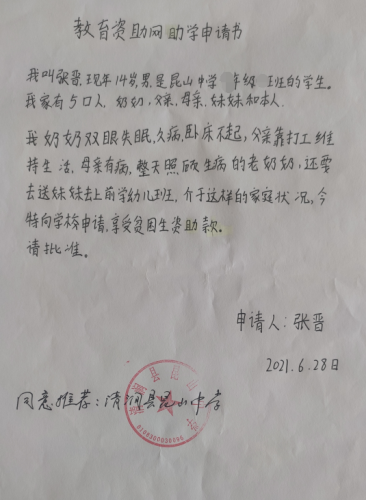 教育资助网助学申请书
我叫张晋,现年14岁,男,是昆山中学 年级 班的学生。
我家有5口人,奶奶,父亲,母亲,妹妹和本人.
我奶奶双眼失眠,久病,卧床不起,父亲靠打工维
持生活,母亲有病,整天照顾生病的老奶奶,还要
去送妹妹去上前学幼儿班,介于这样的家庭状况,今
特向学校申请,享受贫困生资助款。
请批准。
申请人:张晋
2021.6.28日
同意推荐:清涧县昆山中学